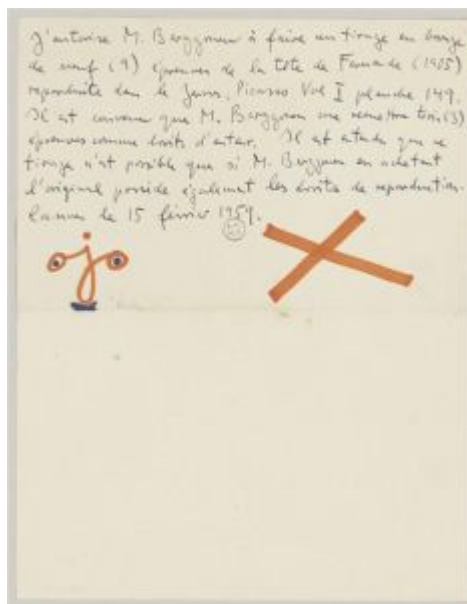 J'autorise M. Berggruen à faire un tirage en bronze
de neuf (9) épreuves de la tête de Fernande (1905)
reproduite dans le Zervos, Picasso Vol I planche 149.
Il est convenu que M. Berggruen me remettra trois (3)
épreuves comme droits d'auteur. Il est entendu que ce
tirage n'est possible que si M. Berggruen en achetant
l'original possède également les droits de reproduction.
Cannes le 15 février 1959.